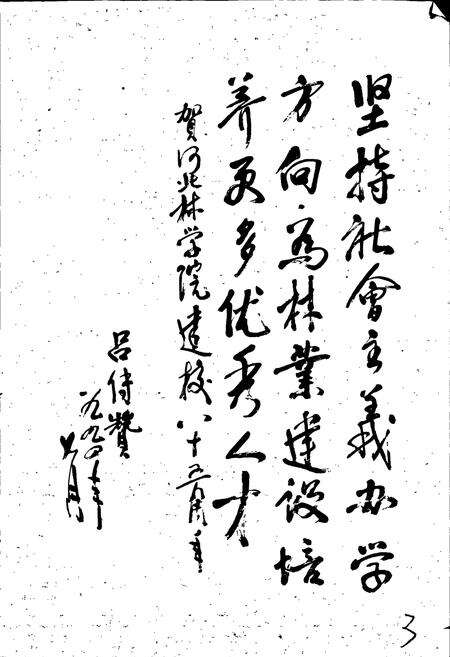 坚持社會主義办学
方向,為林業建设培
养更多优秀人才
贺河北林学院建校八十五周年
吕传赞
一九九四年
月
3